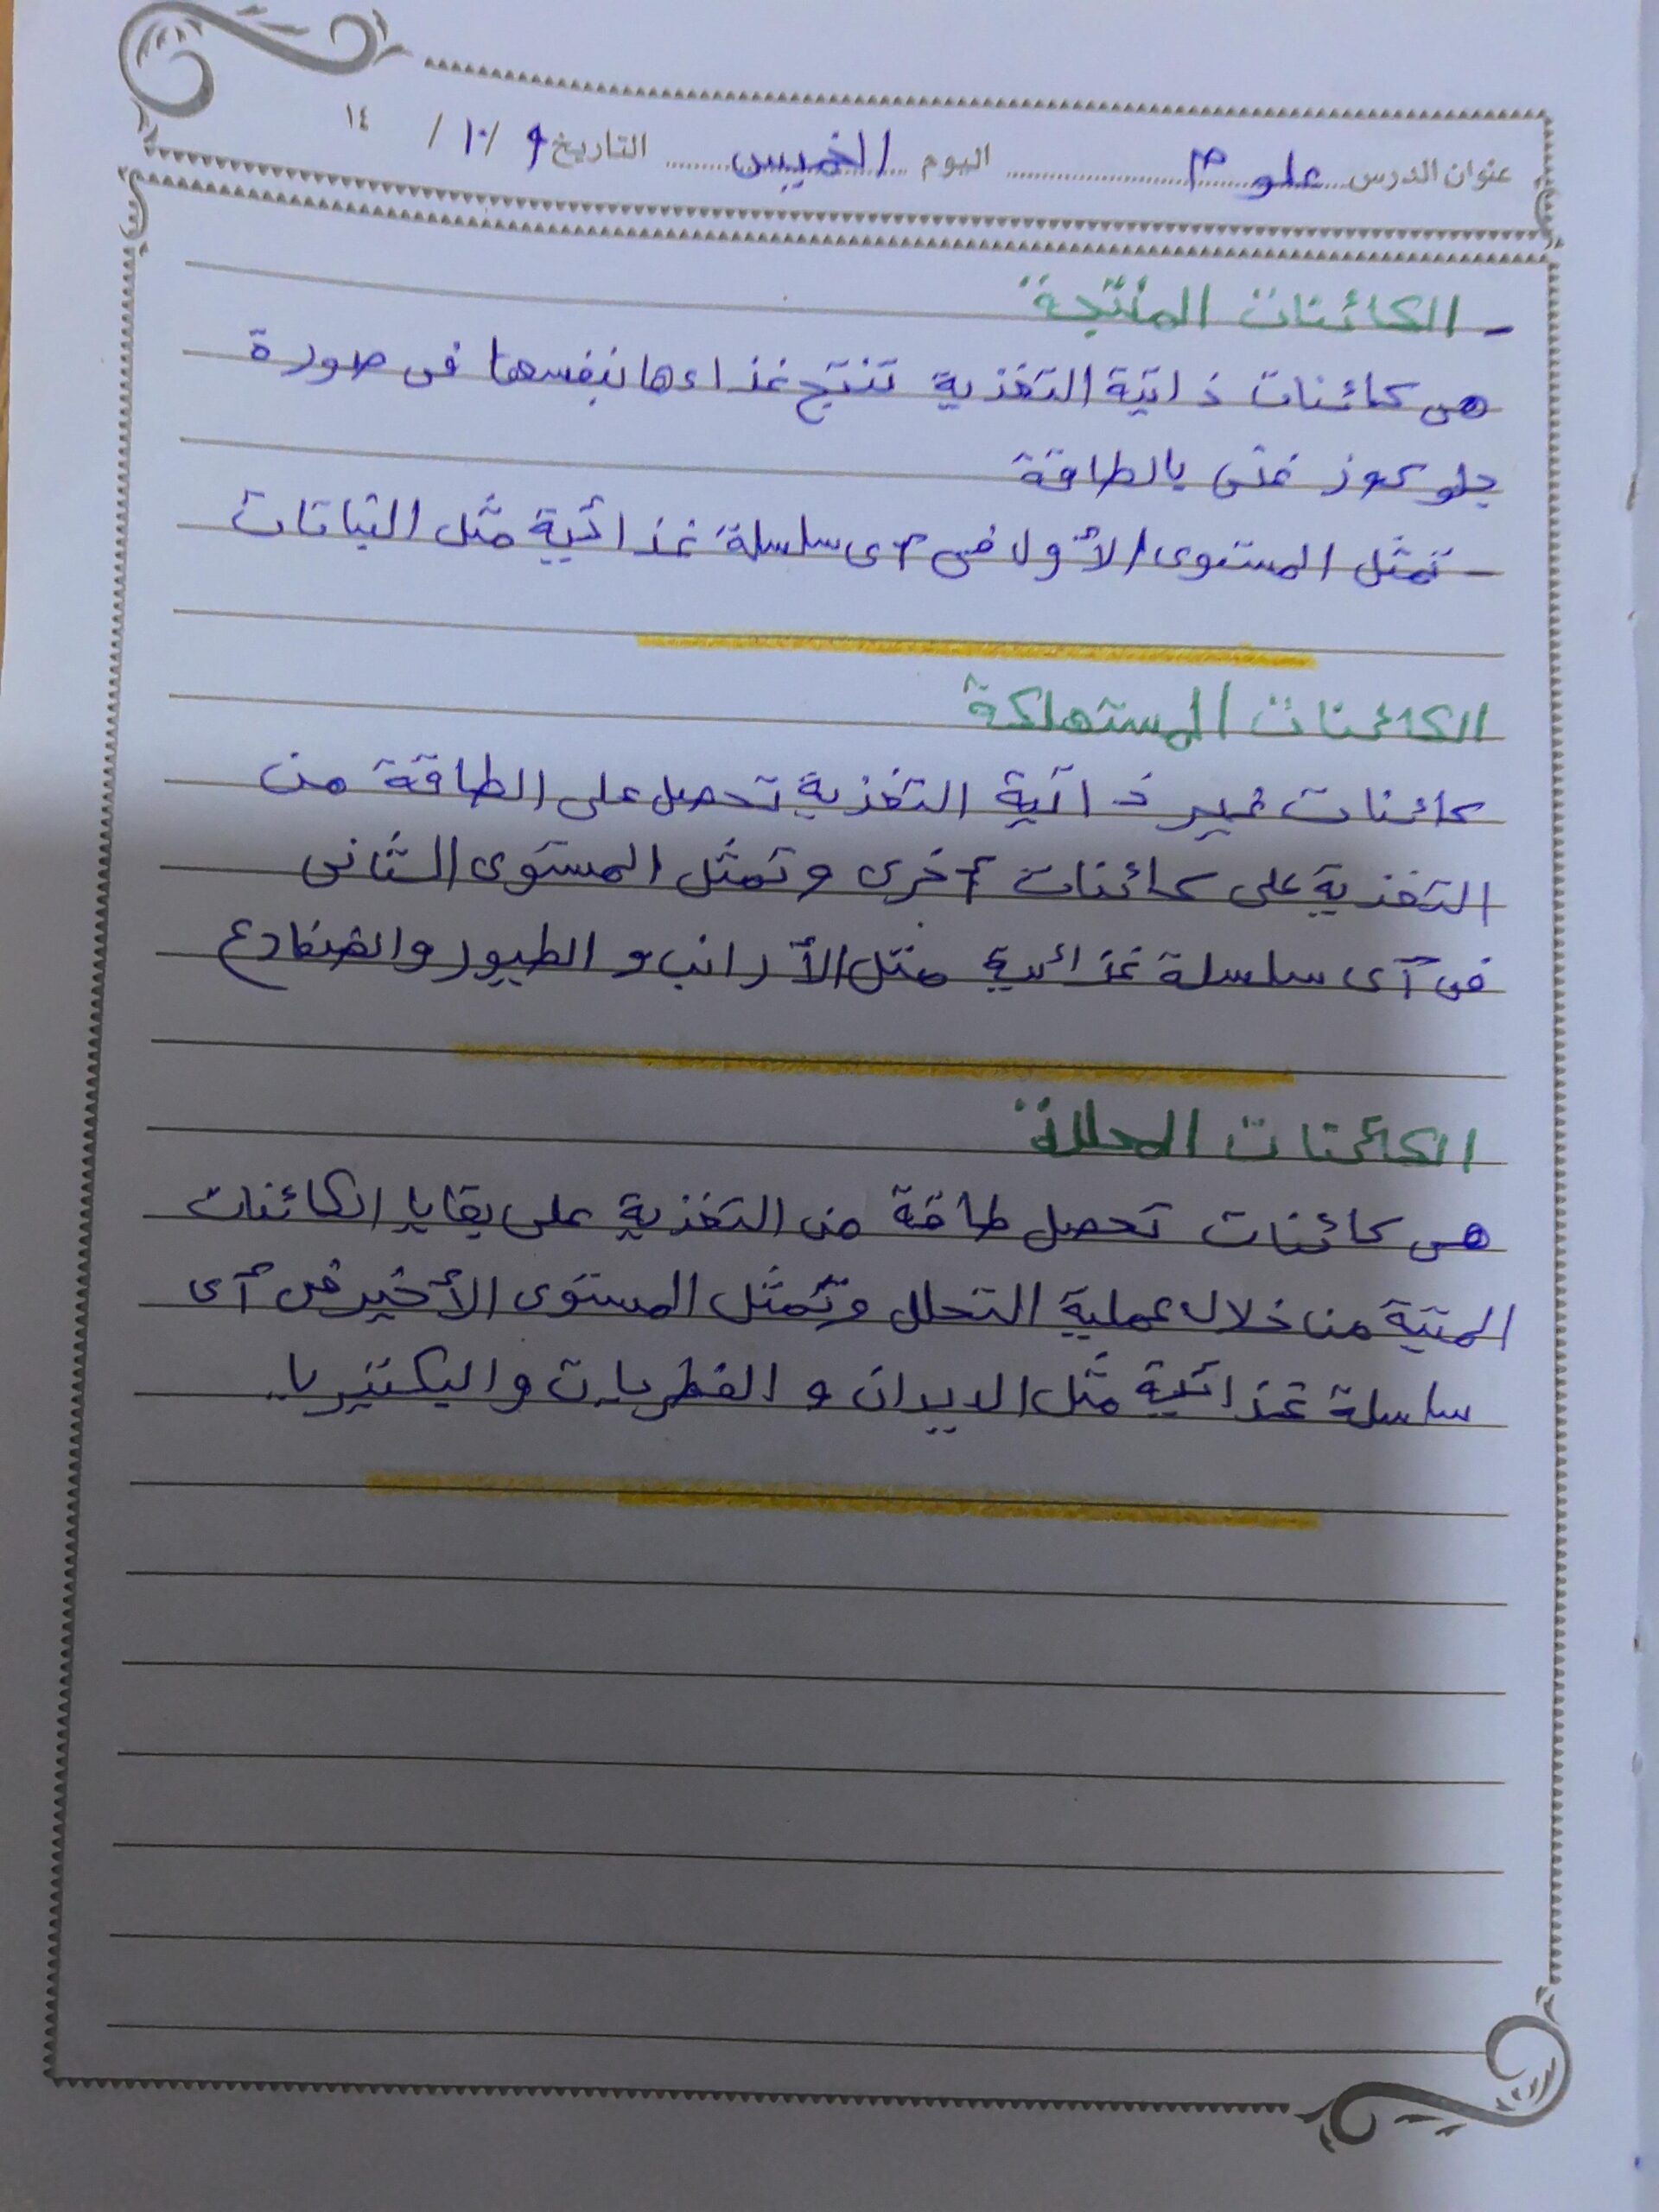 عنوان الدرس علوم اليوم الخميس التاريخ ٩ / ١٠ / ١٤
- الكائنات المنتجة
هى كائنات ذاتية التغذية تنتج غذاءها بنفسها فى صورة
جلوكوز غنى بالطاقة
- تمثل المستوى الأول فى آى سلسلة غذائية مثل النباتات
الكائنات المستهلكة
كائنات غير ذاتية التغذية تحصل على الطاقة من
التغذية على كائنات آخرى وتمثل المستوى الثانى
فى آى سلسلة غذائية مثل الأرانب و الطيور والضفادع
الكائنات المحللة
هى كائنات تحصل طاقة من التغذية على بقايا الكائنات
الميتة من خلال عملية التحلل وتمثل المستوى الأخير فى آى
سلسلة غذائية مثل الديدان و الفطريات والبكتيريا.